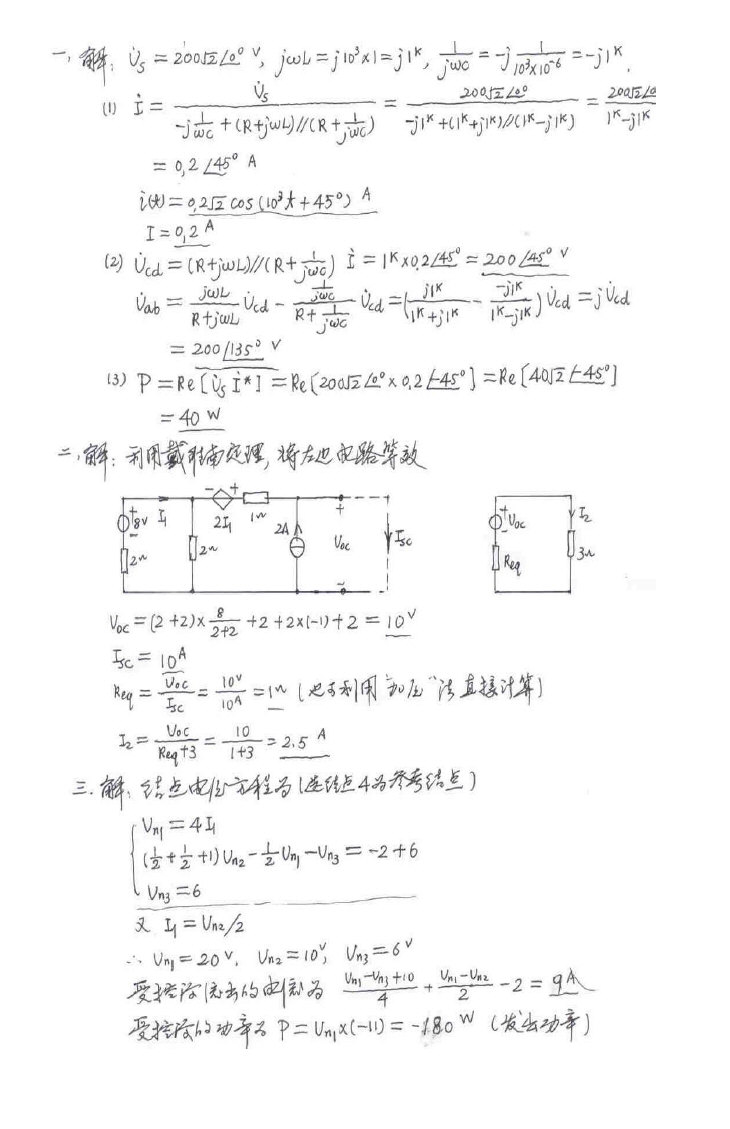 一、解: U̇s = 200√2∠0° V, jωL = j10³×1 = j1ᴷ, 1/jωC = -j 1/(10³×10⁻⁶) = -j1ᴷ.
(1) İ = U̇s/(-j 1/ωC + (R+jωL)//(R+1/jωC)) = 200√2∠0°/(-j1ᴷ+(1ᴷ+j1ᴷ)//(1ᴷ-j1ᴷ)) = 200√2∠0/(1ᴷ-j1ᴷ)
= 0,2∠45° A
i(t) = 0,2√2 cos(10³t+45°) A
I = 0,2 A
(2) U̇cd = (R+jωL)//(R+1/jωC) İ = 1ᴷ×0,2∠45° = 200∠45° V
U̇ab = jωL/(R+jωL) U̇cd - (1/jωC)/(R+1/jωC) U̇cd = (j1ᴷ/(1ᴷ+j1ᴷ) - -j1ᴷ/(1ᴷ-j1ᴷ)) U̇cd = jU̇cd
= 200∠135° V
(3) P = Re[U̇s İ*] = Re[200√2∠0°×0,2∠-45°] = Re[40√2∠-45°]
= 40 W
二、解: 利用戴维南定理, 将左边电路等效
+ 8V - I₁ 2Ω 2Ω - + 2I₁ 1Ω 2A + Uoc - Isc
+ Uoc - Req I₂ 3Ω
Uoc = (2+2)× 8/(2+2) +2+2×(-1)+2 = 10V
Isc = 10A
Req = Uoc/Isc = 10V/10A = 1Ω (也可利用"加压"法直接计算)
I₂ = Uoc/(Req+3) = 10/(1+3) = 2.5 A
三、解: 结点电位方程为(选结点4为参考结点)
Un₁ = 4I₁
(1/2+1/2+1)Un₂ - 1/2 Un₁ - Un₃ = -2+6
Un₃ = 6
又 I₁ = Un₂/2
∴ Un₁ = 20V, Un₂ = 10V, Un₃ = 6V
受控源流出的电流为 (Un₁-Un₃+10)/4 + (Un₁-Un₂)/2 - 2 = 9A
受控源的功率为 P = Un₁×(-11) = -180 W (发出功率)